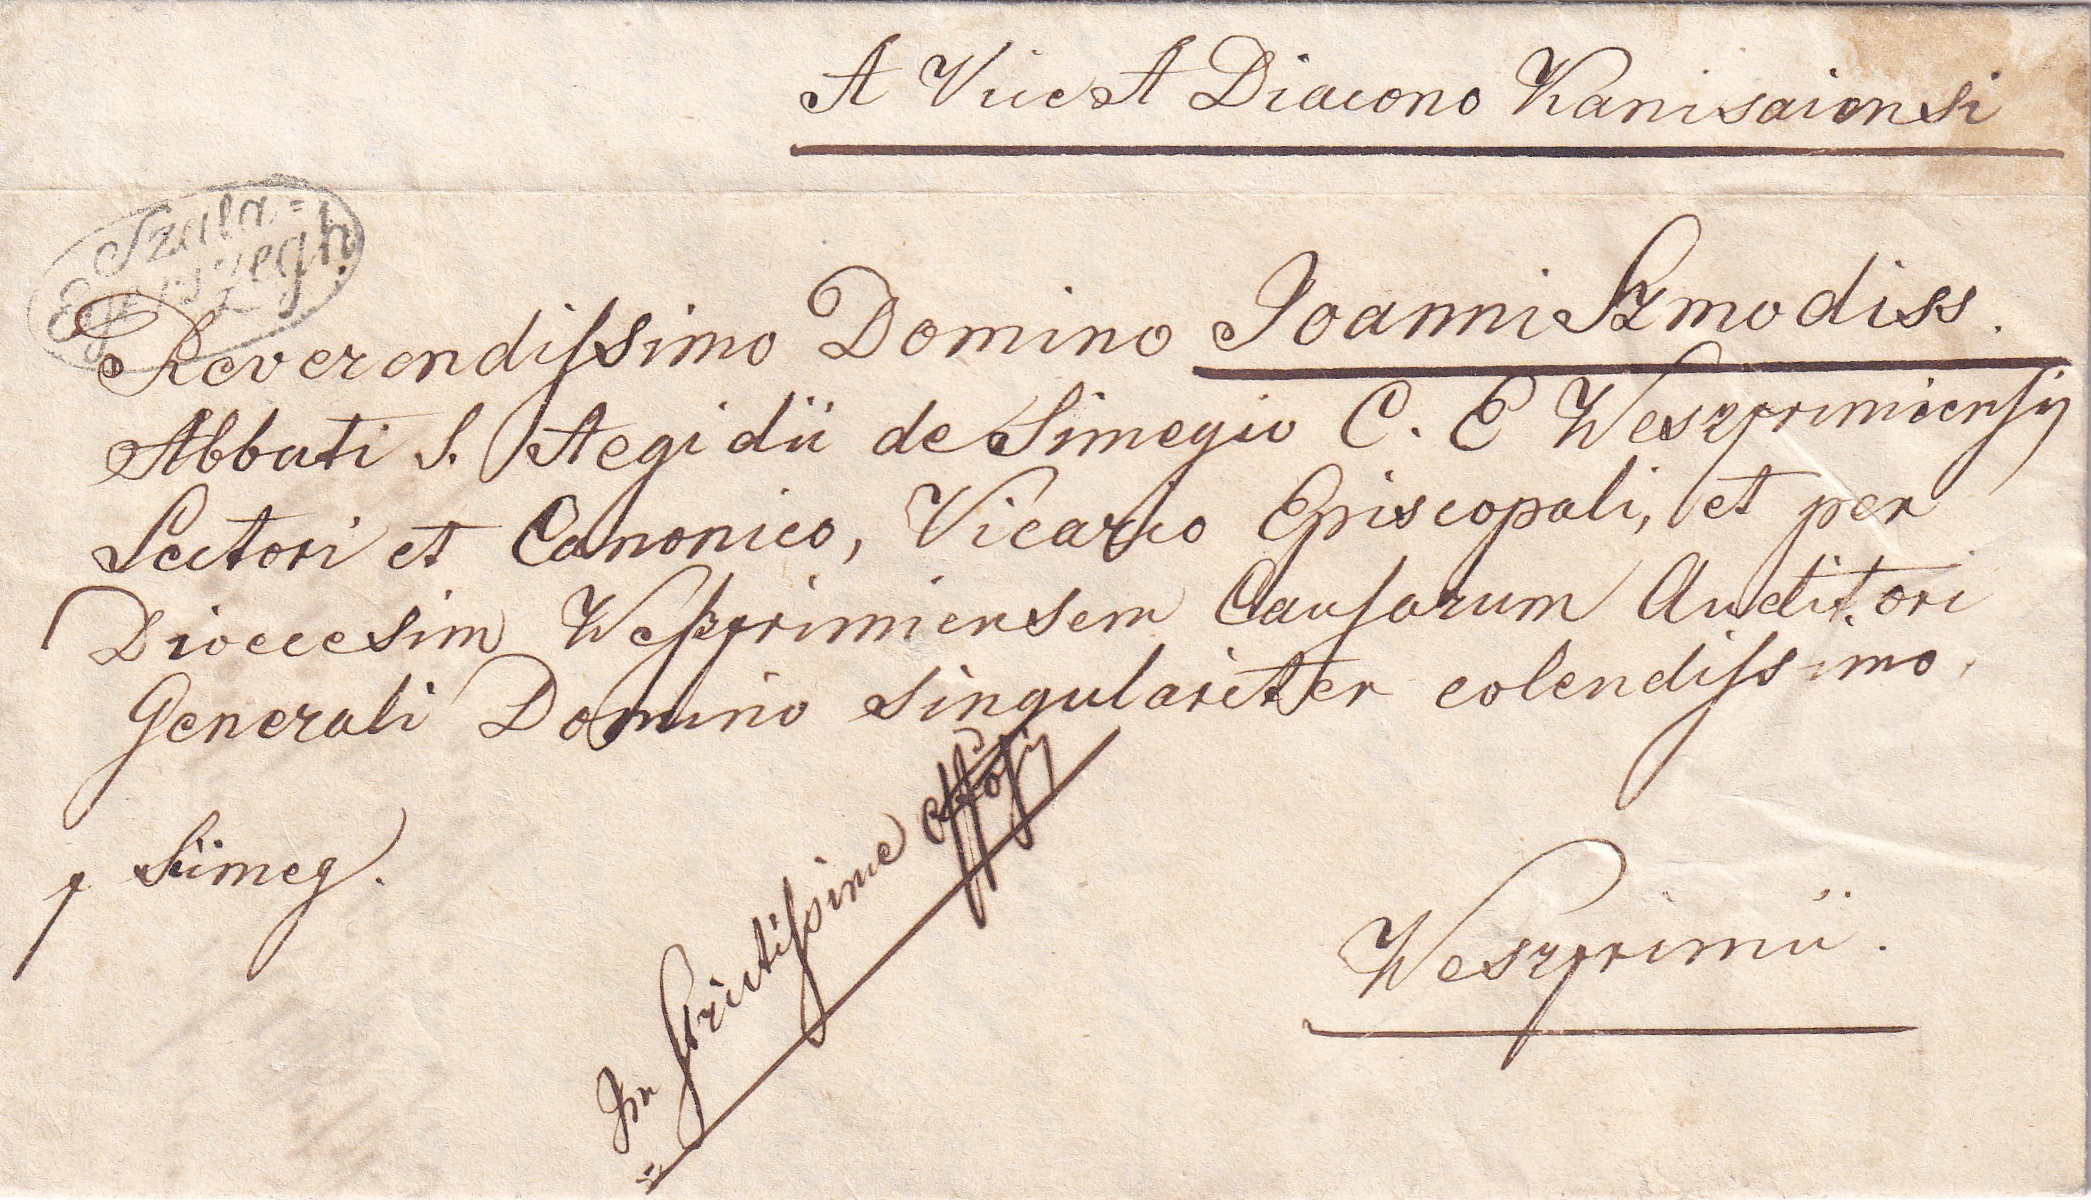 A Vice A Diacono Kanisaiensi
Szala=
Egerszegh.
Reverendissimo Domino Joanni Szmodiss.
Abbati S. Aegidii de Simegio C. E Weszprimiensis
Lectori et Canonico, Vicario Episcopali, et per
Dioecesim Weszprimiensem Causarum Auditori
Generali Domino singulariter colendissimo.
p Sümeg.
In strictissime offosis
Weszprimii.